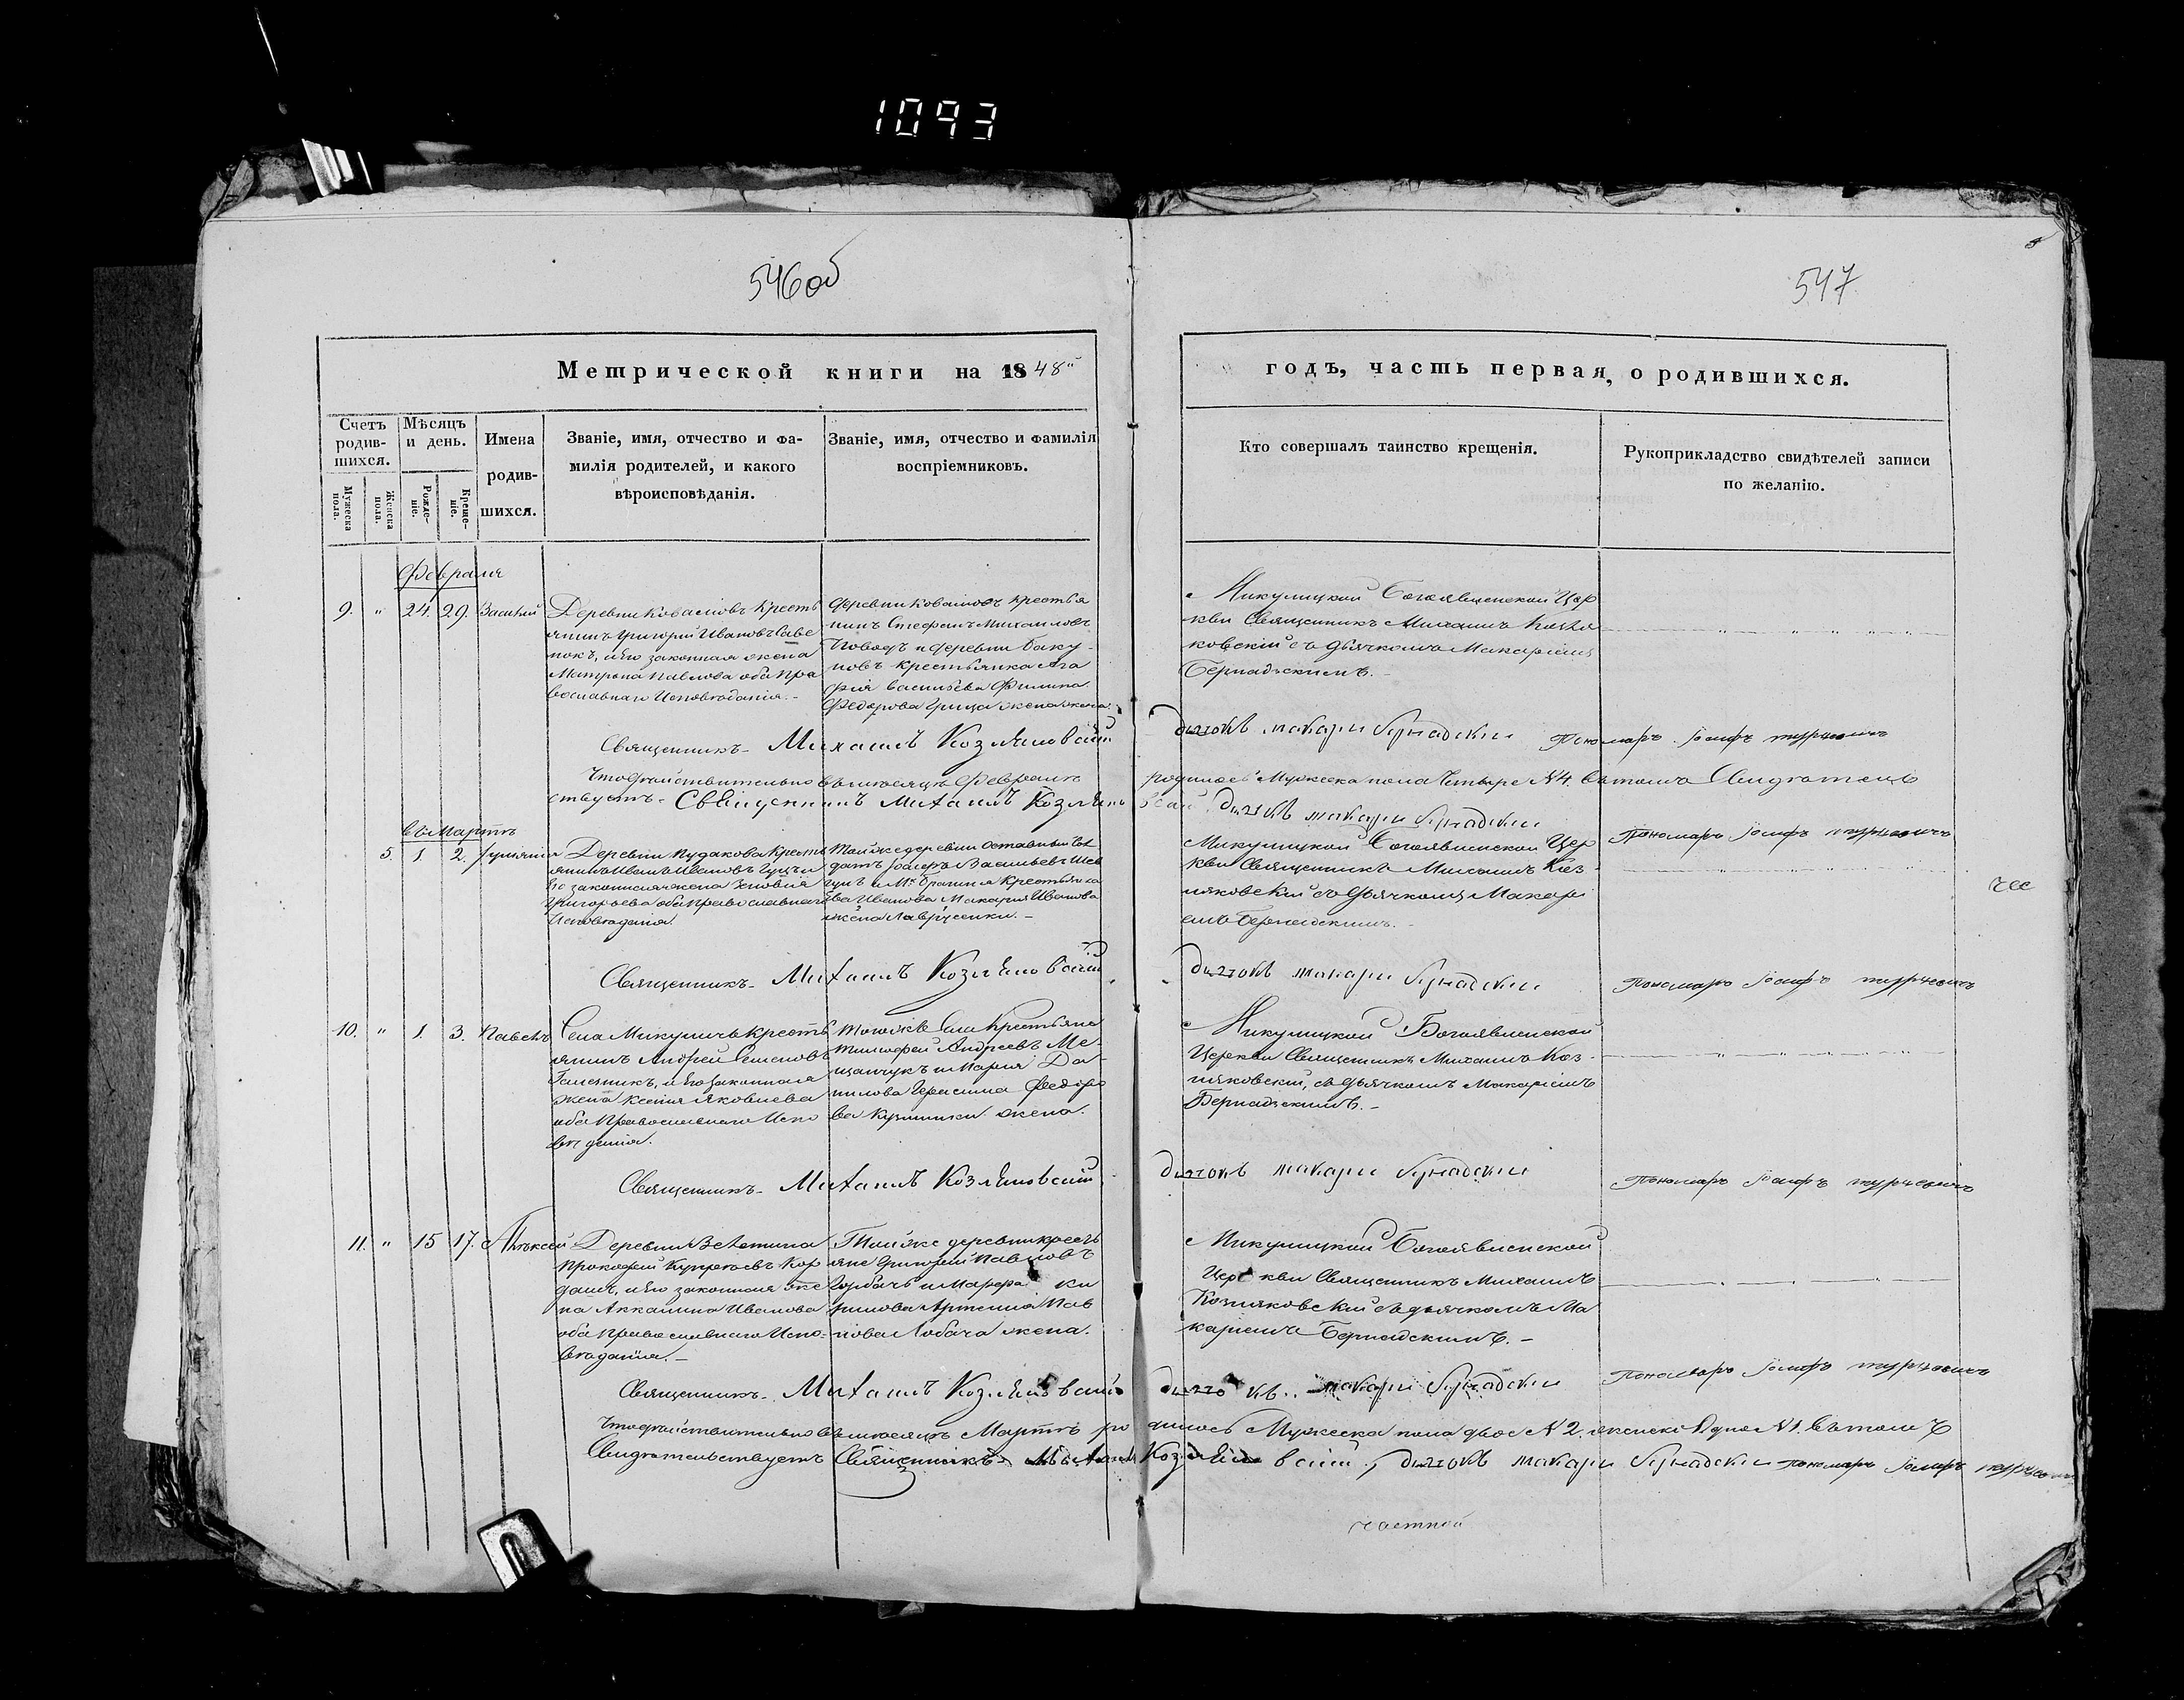 1093
546об
547
Метрической книги на 1848й
годъ, часть первая, о родившихся.
Счетъ родившихся.
Мужеска пола.
Женска пола.
Мѣсяцъ и день.
Рожденіе.
Крещеніе.
Имена родившихся.
Званіе, имя, отчество и фа-
милія родителей, и какого
вѣроисповѣданія.
Званіе, имя, отчество и фамилія
воспріемниковъ.
Кто совершалъ таинство крещенія.
Рукоприкладство свидѣтелей записи
по желанію.
Февраля
9. " 24. 29. Василій
Деревни Ковалювъ Кресть
янинъ Григорій Ивановъ
нокъ, и его законная жена
Матрона Павлова оба Пра
вославнаго Исповѣданія. -
Деревни Ковалювъ Крестья
нинъ Стефанъ Михаиловъ
и деревни Баку-
новъ крестьянка Ага
фія Васильева Филипа
Федорова Грица жена
Микулицкой Богоявленской Цер
кви Священникъ Михаилъ Козля
ковскій съ дьячкомъ Макаріемъ
Бернадскимъ. -
Священникъ - Михаилъ Козляковскій
дьячокъ макари бернадски
Пономаръ Іосифъ турцевичъ
Что дѣйствительно въ мѣсяцѣ Февралѣ родилось Мужеска пола Четыре N 4. въ томъ Свидѣтель
ствуетъ - Священникъ Михаилъ Козляковскій дьячокъ макари бернадски
Пономаръ Іосифъ турцевичъ
въ Мартѣ
5. 1. 2.
Деревни Пудакова Кресть
янинъ Иванъ Ивановъ и
его законная жена Зеновія
Григорьева оба Православнаго
Исповѣданія.
Той же деревни отставный Сол
датъ Васильевъ Шев
чукъ и Мч Брагиня Крестьянка
Ева Иванова Макарія Иванова
жена Лаврусенки. -
Микулицкой Богоявленской Цер
кви Священникъ Михаилъ Коз-
ляковскій съ дьячкомъ Макарі
емъ Бернадскимъ. -
чес
Священникъ - Михаилъ Козляковскій
дьячокъ макари бернадски
Пономаръ Іосифъ турцевичъ
10. " 1. 3. Павелъ
Села Микуличь Кресть
янинъ Андрей Семеновъ
и его законная
жена Ксенія Яковлева
оба Православнаго Испо
вѣданія.
Того же Села Крестьяне
Тимофей Андреевъ Ме-
щанчукъ и Марія Да-
нилова Герасима Федоро
ва Кузминки жена.
Микулицкой Богоявленской
Церкви Священникъ Михаилъ Коз-
ляковскій, съ дьячкомъ Макаріемъ
Бернадскимъ. -
Священникъ - Михаилъ Козляковскій
дьячокъ макари бернадски
Пономаръ Іосифъ турцевичъ
11. " 15 17. Алѣксѣй
Деревни Велетина
Прокофій Кор
данъ, и его законная же
на Аккилина Иванова
оба Православнаго Испо-
вѣданія. -
Той же деревни кресть
яне Григорій Павловъ
Горбачъ и Марфа Ки
рилова Артемія Пав
лова Лобача жена.
Микулицкой Богоявленской
Церкви Священникъ Михаилъ
Козляковскій съ дьячкомъ Ма
каріемъ Бернадскимъ. -
Священникъ - Михаилъ Козляковскій
дьячокъ макари бернадски
Пономаръ Іосифъ турцевичъ
Что дѣйствительно въ мѣсяцѣ Мартѣ родилось Мужеска пола двое N 2. женска Одна N 1. въ томъ
Свидѣтельствуетъ Священникъ Михаилъ Козляковскій, дьячокъ макари бернадски пономаръ Іосифъ турцевичъ
частной